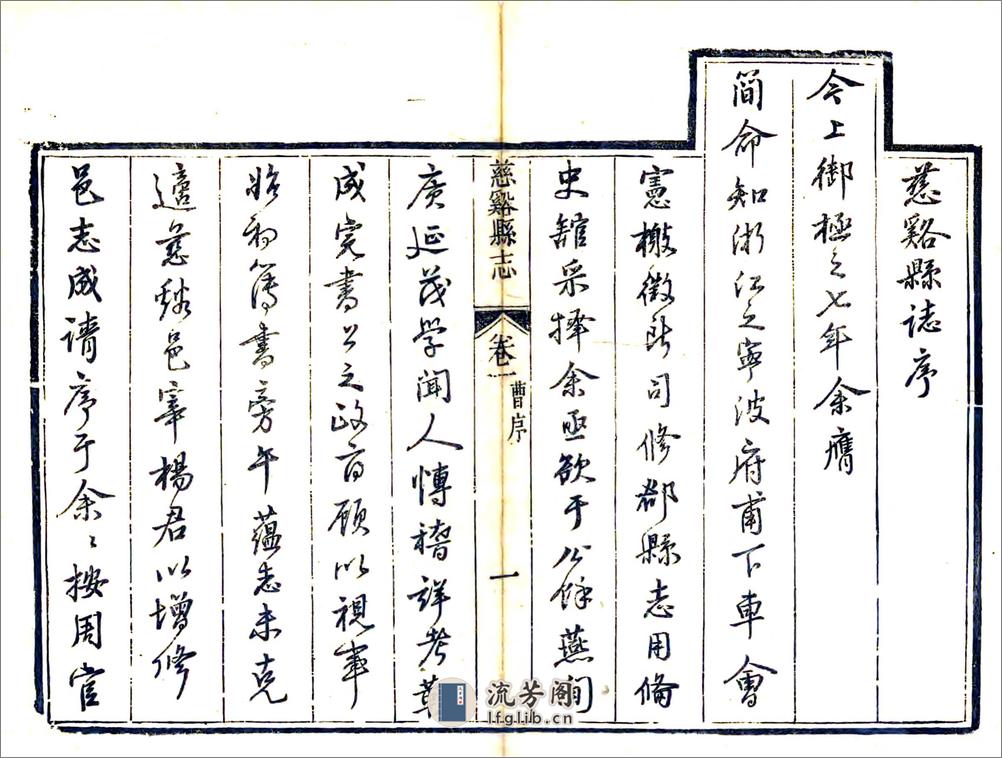 慈谿縣誌序
今上御極之七年余膺
簡命知浙江之寧波府甫下車會
憲檄徵所司修郡縣志用備
史館采擇余亟欲于公餘燕閒
慈谿縣志
卷一
曹序
一
廣延茂學聞人慱稽詳考葺
成完書公之政府顧以視事
始初簿書旁午蘊志未克
適慈谿邑宰楊君以增修
邑志成請序于余〻按周官
流芳阁
lfglib.cn